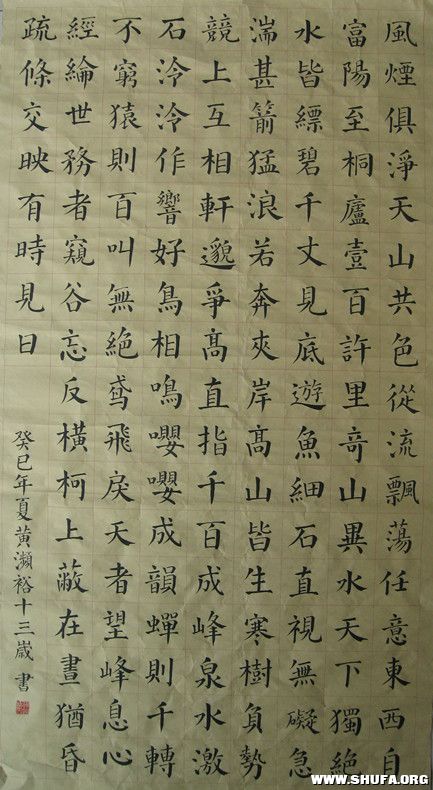 風煙俱淨天山共色從流飄蕩任意東西自
富陽至桐廬壹百許里竒山異水天下獨絕
水皆縹碧千丈見底遊魚細石直視無礙急
湍甚箭猛浪若奔夾岸髙山皆生寒樹負勢
競上互相軒邈爭髙直指千百成峰泉水激
石泠泠作響好鳥相鳴嚶嚶成韻蟬則千轉
不窮猿則百叫無絕鳶飛戾天者望峰息心
經綸世務者窺谷忘反橫柯上蔽在晝猶昏
疏條交映有時見日
癸巳年夏黃瀕裕十三歲書
WWW.SHUFA.ORG